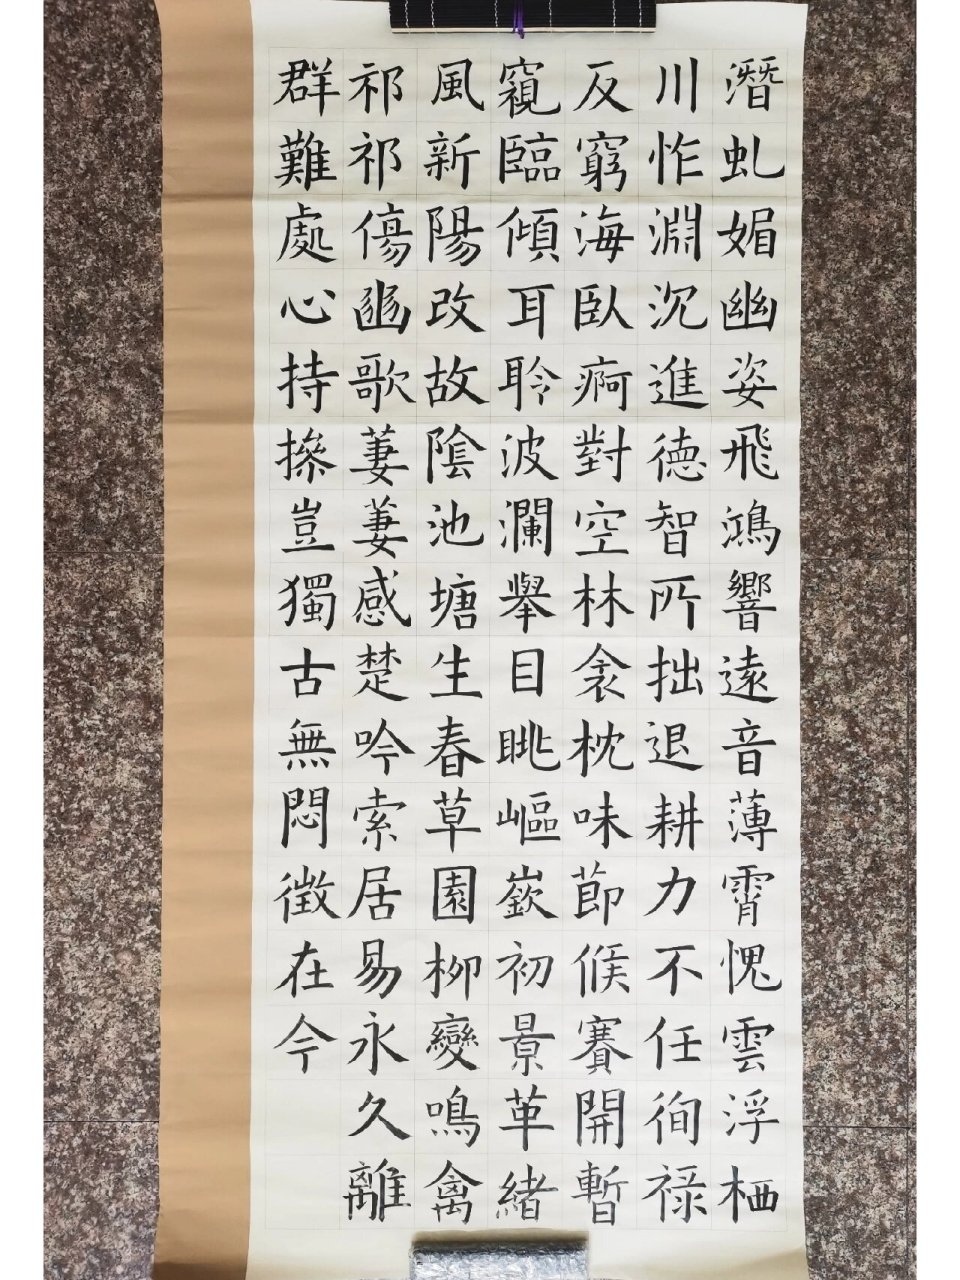 潛虬媚幽姿飛鴻響遠音薄霄愧雲浮栖
川怍淵沉進德智所拙退耕力不任徇禄
反窮海臥痾對空林衾枕昧節候褰開暫
窺臨傾耳聆波瀾舉目眺嶇嶔初景革緒
風新陽改故陰池塘生春草園柳變鳴禽
祁祁傷豳歌萋萋感楚吟索居易永久離
群難處心持操豈獨古無悶徵在今